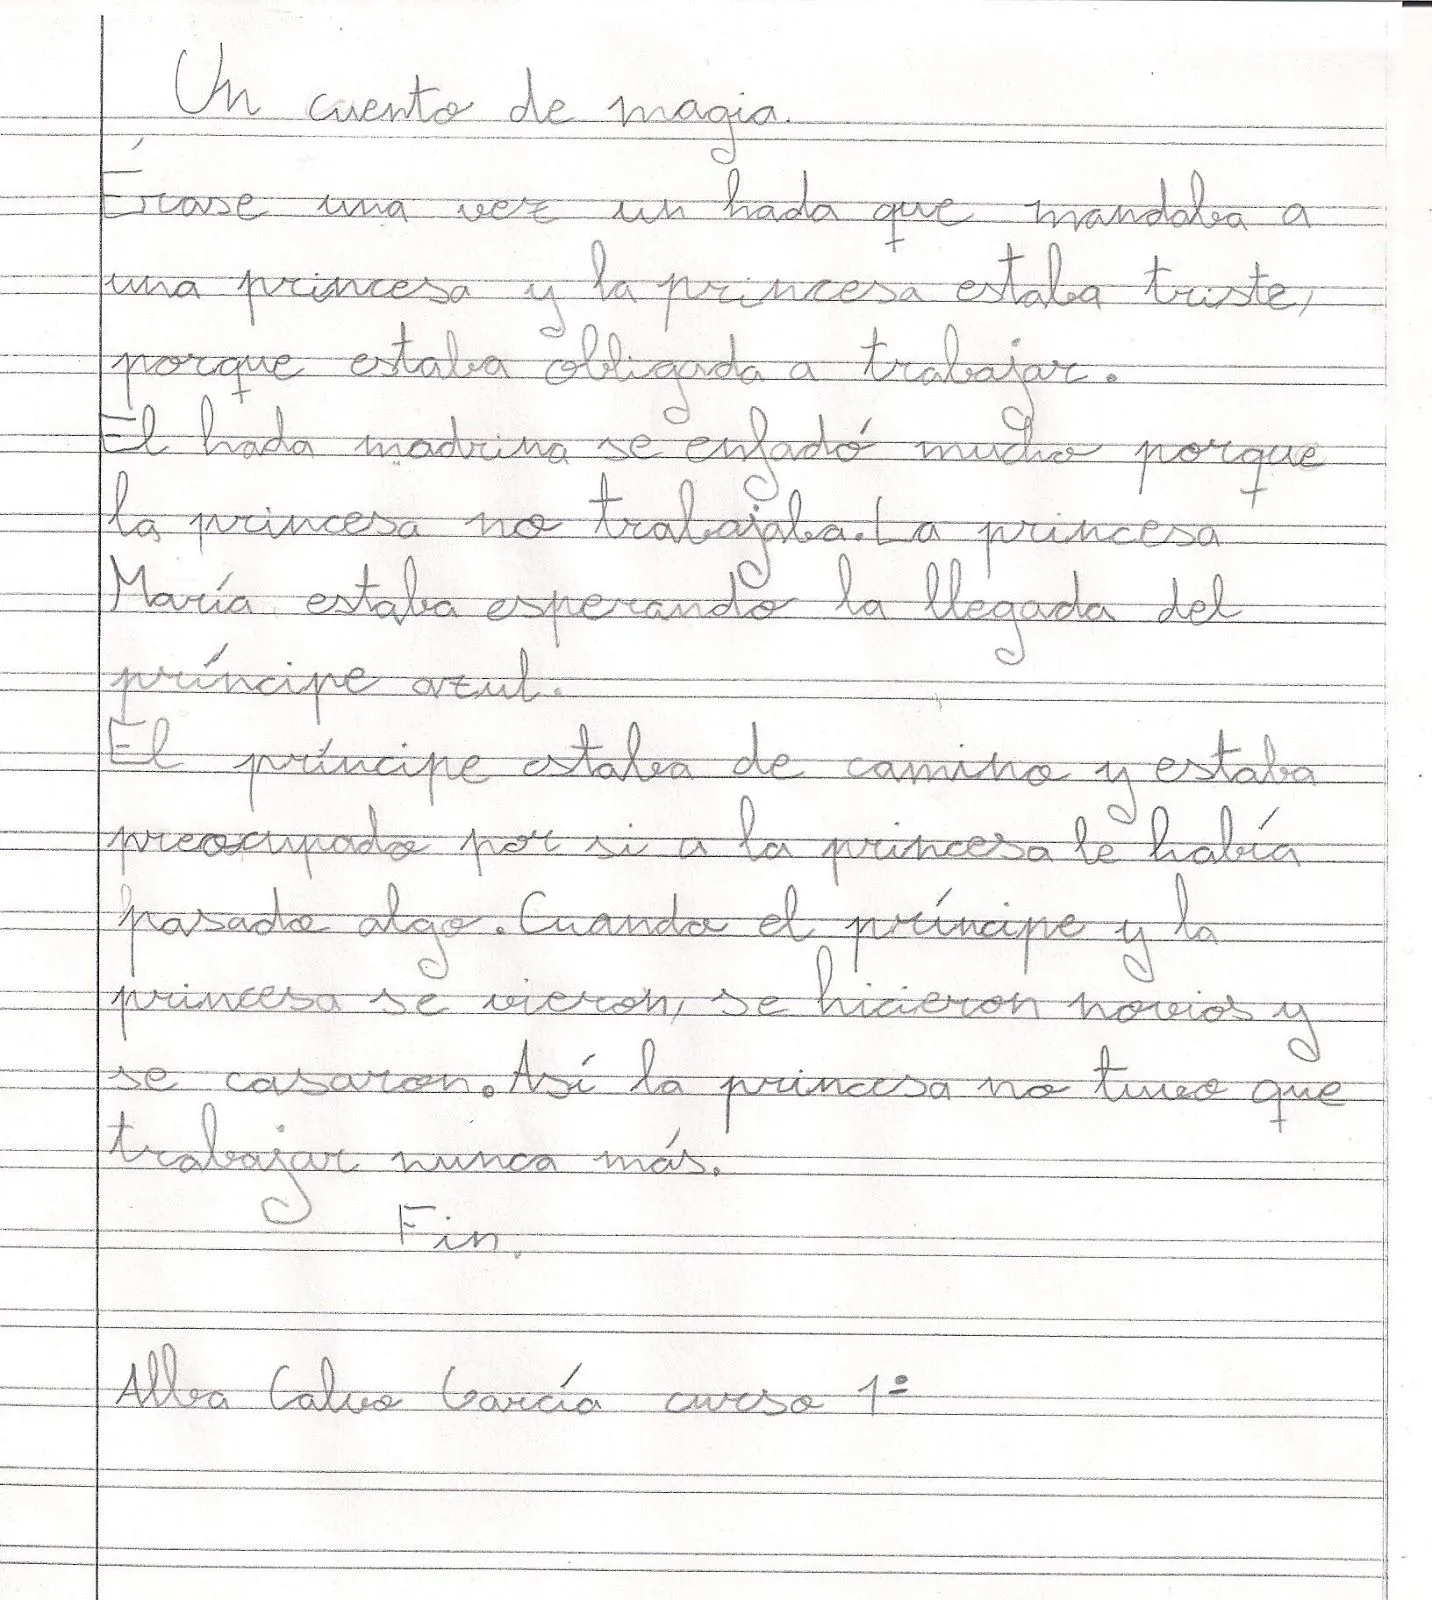 Un cuento de magia.
Érase una vez un hada que mandaba a
una princesa y la princesa estaba triste,
porque estaba obligada a trabajar.
El hada madrina se enfadó mucho porque
la princesa no trabajaba. La princesa
María estaba esperando la llegada del
príncipe azul.
El príncipe estaba de camino y estaba
preocupado por si a la princesa le había
pasado algo. Cuando el príncipe y la
princesa se vieron, se hicieron novios y
se casaron. Así la princesa no tuvo que
trabajar nunca más.
Fin.
Alba Calvo García curso 1º